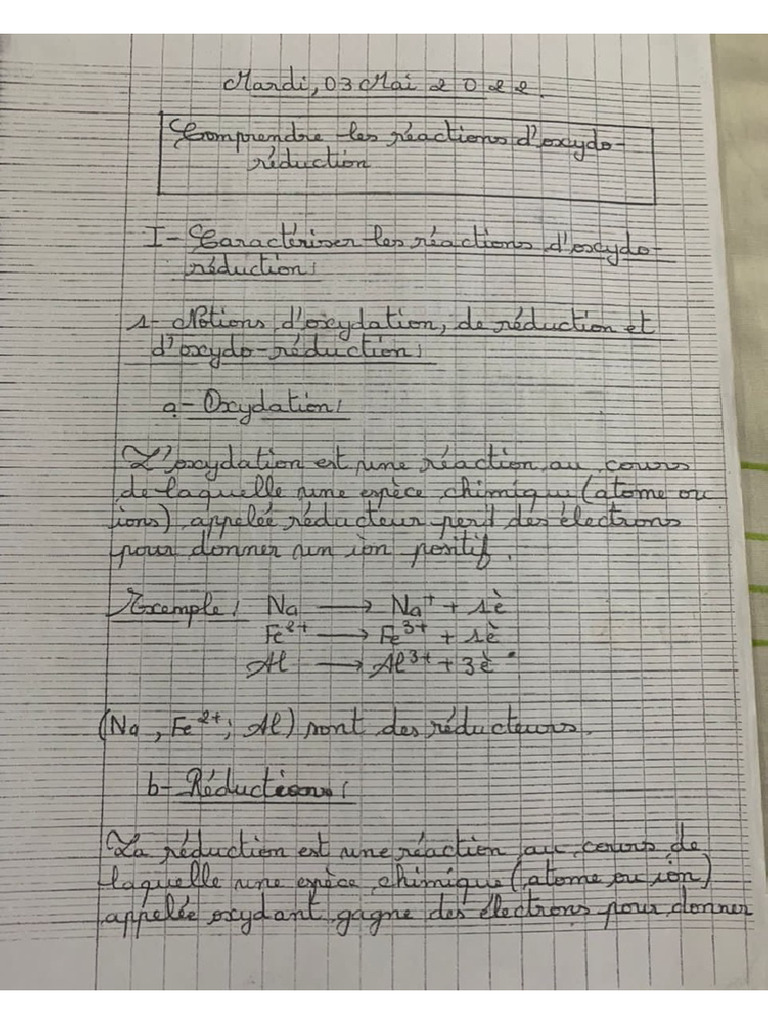 Mardi, 03 Mai 2022.
Comprendre les réactions d'oxydo-
réduction
I- Caractériser les réactions d'oxydo-
réduction:
1- Notions d'oxydation, de réduction et
d'oxydo-réduction:
a- Oxydation:
L'oxydation est une réaction au cours
de laquelle une espèce chimique (atome ou
ions) appelée réducteur perd des électrons
pour donner un ion positif.
Exemple: Na → Na⁺ + 1e⁻
Fe²⁺ → Fe³⁺ + 1e⁻
Al → Al³⁺ + 3e⁻
(Na, Fe²⁺; Al) sont des réducteurs.
b- Réduction:
La réduction est une réaction au cours de
laquelle une espèce chimique (atome ou ion)
appelée oxydant gagne des électrons pour donner